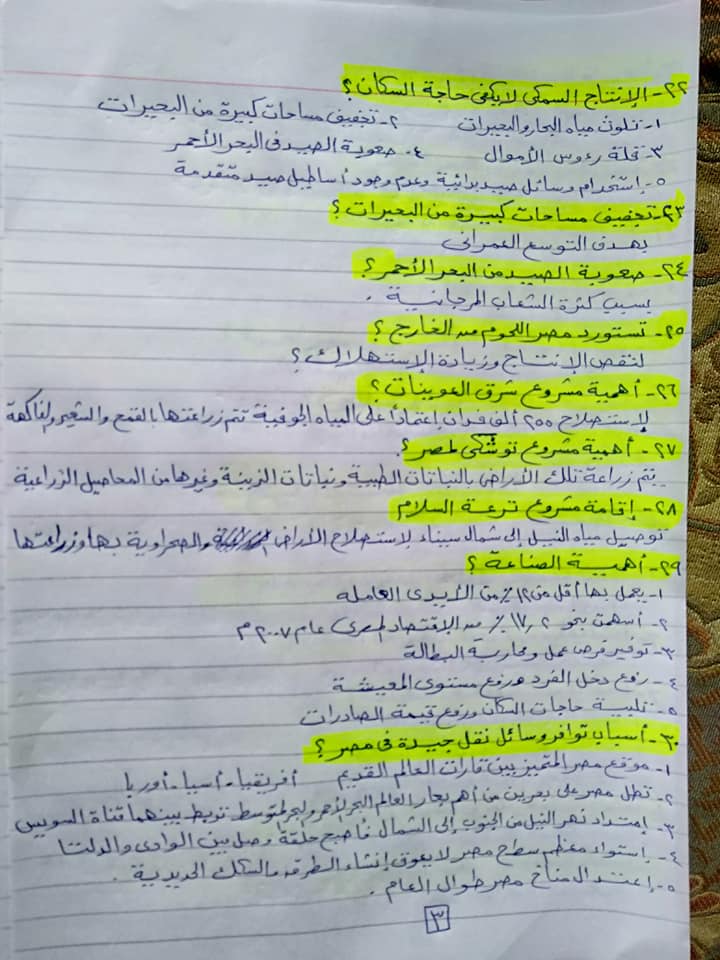 ٢٢- الإنتاج السمكى لا يكفى حاجة السكان؟
١- تلوث مياه البحار والبحيرات ٢- تجفيف مساحات كبيرة من البحيرات
٣- قلة رءوس الأموال ٤- صعوبة الصيد فى البحر الأحمر
٥- إستخدام وسائل صيد بدائية وعدم وجود أساطيل صيد متقدمة
٢٣- تجفيف مساحات كبيرة من البحيرات؟
بهدف التوسع العمرانى
٢٤- صعوبة الصيد من البحر الأحمر؟
بسبب كثرة الشعاب المرجانية .
٢٥- تستورد مصر اللحوم من الخارج؟
لنقص الإنتاج وزيادة الإستهلاك؟
٢٦- أهمية مشروع شرق العوينات؟
لإستصلاح ٢٥٥ ألف فدان إعتماداً على المياه الجوفية تتم زراعتها بالقمح والشعير والفاكهة
٢٧- أهمية مشروع توشكى لمصر؟
يتم زراعة تلك الأراضى بالنباتات الطبية ونباتات الزينة وغيرها من المحاصيل الزراعية
٢٨- إقامة مشروع ترعة السلام
توصيل مياه النيل إلى شمال سيناء لإستصلاح الأراضى والصحراوية بها وزراعتها
٢٩- أهمية الصناعة؟
١- يعمل بها أقل من ١٢٪ من الأيدى العامله
٢- أسهمت بنحو ١٧,٢٪ من الإقتصاد المصرى عام ٢٠٠٧م
٣- توفير فرص عمل ومحاربة البطالة
٤- رفع دخل الفرد ورفع مستوى المعيشة
٥- تلبية حاجات السكان ورفع قيمة الصادرات
٣٠- أسباب توافر وسائل نقل جيدة فى مصر؟
١- موقع مصر المتميز بين قارات العالم القديم أفريقيا - أسيا - أوربا
٢- تطل مصر على بحرين من أهم بحار العالم البحر الأحمر والبحر المتوسط تربط بينهما قناة السويس
٣- إمتداد نهر النيل من الجنوب إلى الشمال فأصبح حلقة وصل بين الوادى والدلتا
٤- إستواء معظم سطح مصر لا يعوق إنشاء الطرق والسكك الحديدية .
٥- إعتدال مناخ مصر طوال العام .
٣